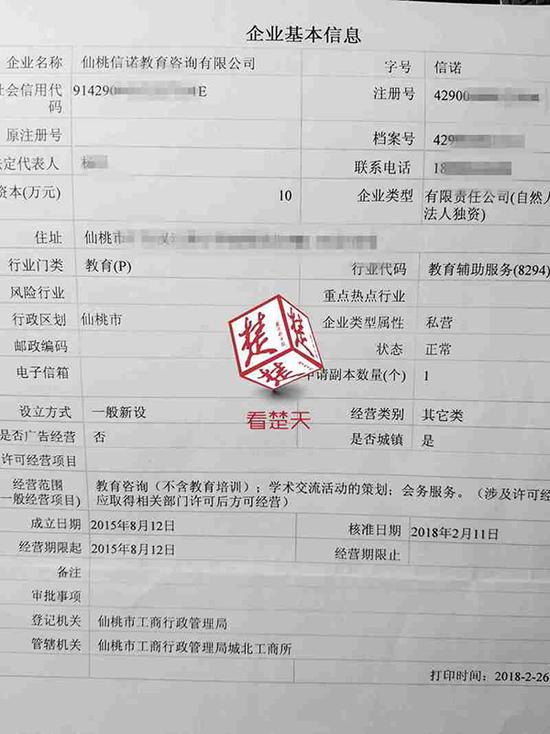 企业基本信息
企业名称 仙桃信诺教育咨询有限公司 字号 信诺
社会信用代码 914290 E 注册号 42900
原注册号 档案号 429
法定代表人 杨 联系电话 18
资本(万元) 10 企业类型 有限责任公司(自然人
法人独资)
住址 仙桃市
行业门类 教育(P) 行业代码 教育辅助服务(8294)
风险行业 重点热点行业
行政区划 仙桃市 企业类型属性 私营
邮政编码 状态 正常
电子信箱 申请副本数量(个) 1
设立方式 一般新设 经营类别 其它类
是否广告经营 否 是否城镇 是
许可经营项目
经营范围 教育咨询（不含教育培训）；学术交流活动的策划；会务服务。（涉及许可经
一般经营项目) 应取得相关部门许可后方可经营）
成立日期 2015年8月12日 核准日期 2018年2月11日
经营期限起 2015年8月12日 经营期限止
备注
审批事项
登记机关 仙桃市工商行政管理局
管辖机关 仙桃市工商行政管理局城北工商所
打印时间：2018-2-26
楚
楚
楚
看楚天